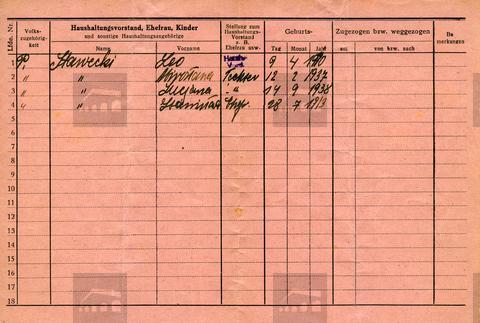 Lfde. Nr. Volks- zugehörig- keit Haushaltungsvorstand, Ehefrau, Kinder und sonstige Haushaltungsangehörige Stellung zum Haushaltungs- Vorstand z. B. Ehefrau usw. Geburts- Zugezogen bzw. weggezogen Be merkungen
Name Vorname Tag Monat Jahr am von bzw. nach
1 P. Stawecki Leo 9 4
2 " " Tochter 12 2 1937
3 " " Lucjana " 14 9 1938
4 " " 28 7
5
6
7
8
9
10
11
12
13
14
15
16
17
18